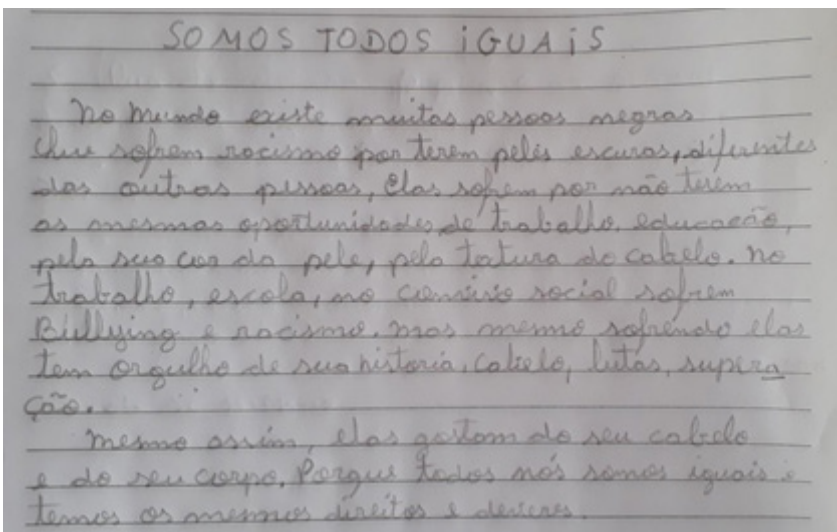 SOMOS TODOS iGUAiS
no mundo existe muitas pessoas negras
que sofrem racismo por terem peles escuras, diferentes
das outras pessoas, Elas sofrem por não terem
as mesmas oportunidades de trabalho, educação,
pela sua cor da pele, pela textura do cabelo. no
trabalho, escola, no convivio social sofrem
Bullying e racismo. mas mesmo sofrendo elas
tem orgulho de sua historia, cabelo, lutas, supera
ção.
mesmo assim, elas gostam do seu cabelo
e do seu corpo. Porque todos nós somos iguais e
temos os mesmos direitos e deveres.